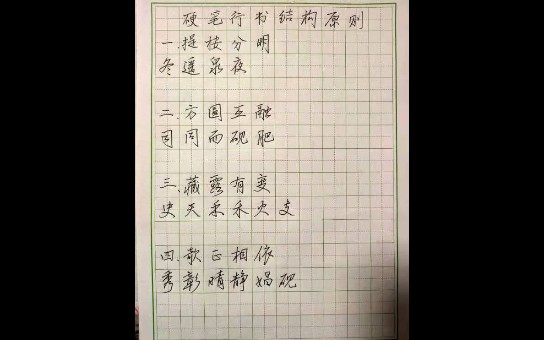 硬笔行书结构原则
一.提按分明
冬遥泉夜
二.方圆互融
司同而砚肥
三.藏露有变
史天乐禾火支
四.欹正相依
秀彰晴静娟砚